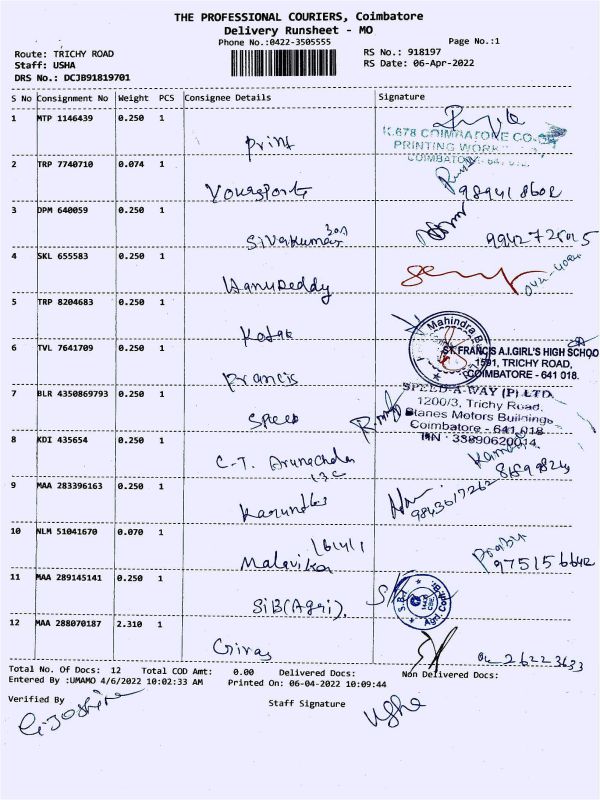 THE PROFESSIONAL COURIERS, Coimbatore
Delivery Runsheet - MO
Phone No.:0422-3505555
Page No.:1
Route: TRICHY ROAD
RS No.: 918197
Staff: USHA
RS Date: 06-Apr-2022
DRS No.: DCJB91819701
S No Consignment No Weight PCS Consignee Details Signature
1 MTP 1146439 0.250 1
Print
K.678 COIMBATORE CO-OP
PRINTING WORK
COIMBATORE-641 018.
2 TRP 7740710 0.074 1
Yoursports
98941 8602
3 DPM 640059 0.250 1
Sivakumar
4 SKL 655583 0.250 1
Hanureddy
5 TRP 8204683 0.250 1
Kotak
Mahindra
6 TVL 7641709 0.250 1
Francis
ST. FRANCIS A.I.GIRL'S HIGH SCHOO
1591, TRICHY ROAD,
COIMBATORE - 641 018.
7 BLR 4350869793 0.250 1
Speed
SPEED-A-WAY (P) LTD.
1200/3, Trichy Road,
Stanes Motors Buildings
Coimbatore - 641 018
TIN : 33890620014
8 KDI 435654 0.250 1
C.T. Arunachalam
9 MAA 283396163 0.250 1
9843617262
10 NLM 51041670 0.070 1
Malavika
Prabu
975156642
11 MAA 289145141 0.250 1
SIB(Agri),
12 MAA 288070187 2.310 1
Girias
2622 3633
Total No. Of Docs: 12 Total COD Amt: 0.00 Delivered Docs: Non Delivered Docs:
Entered By :UMAMO 4/6/2022 10:02:33 AM Printed On: 06-04-2022 10:09:44
Verified By Staff Signature
Usha